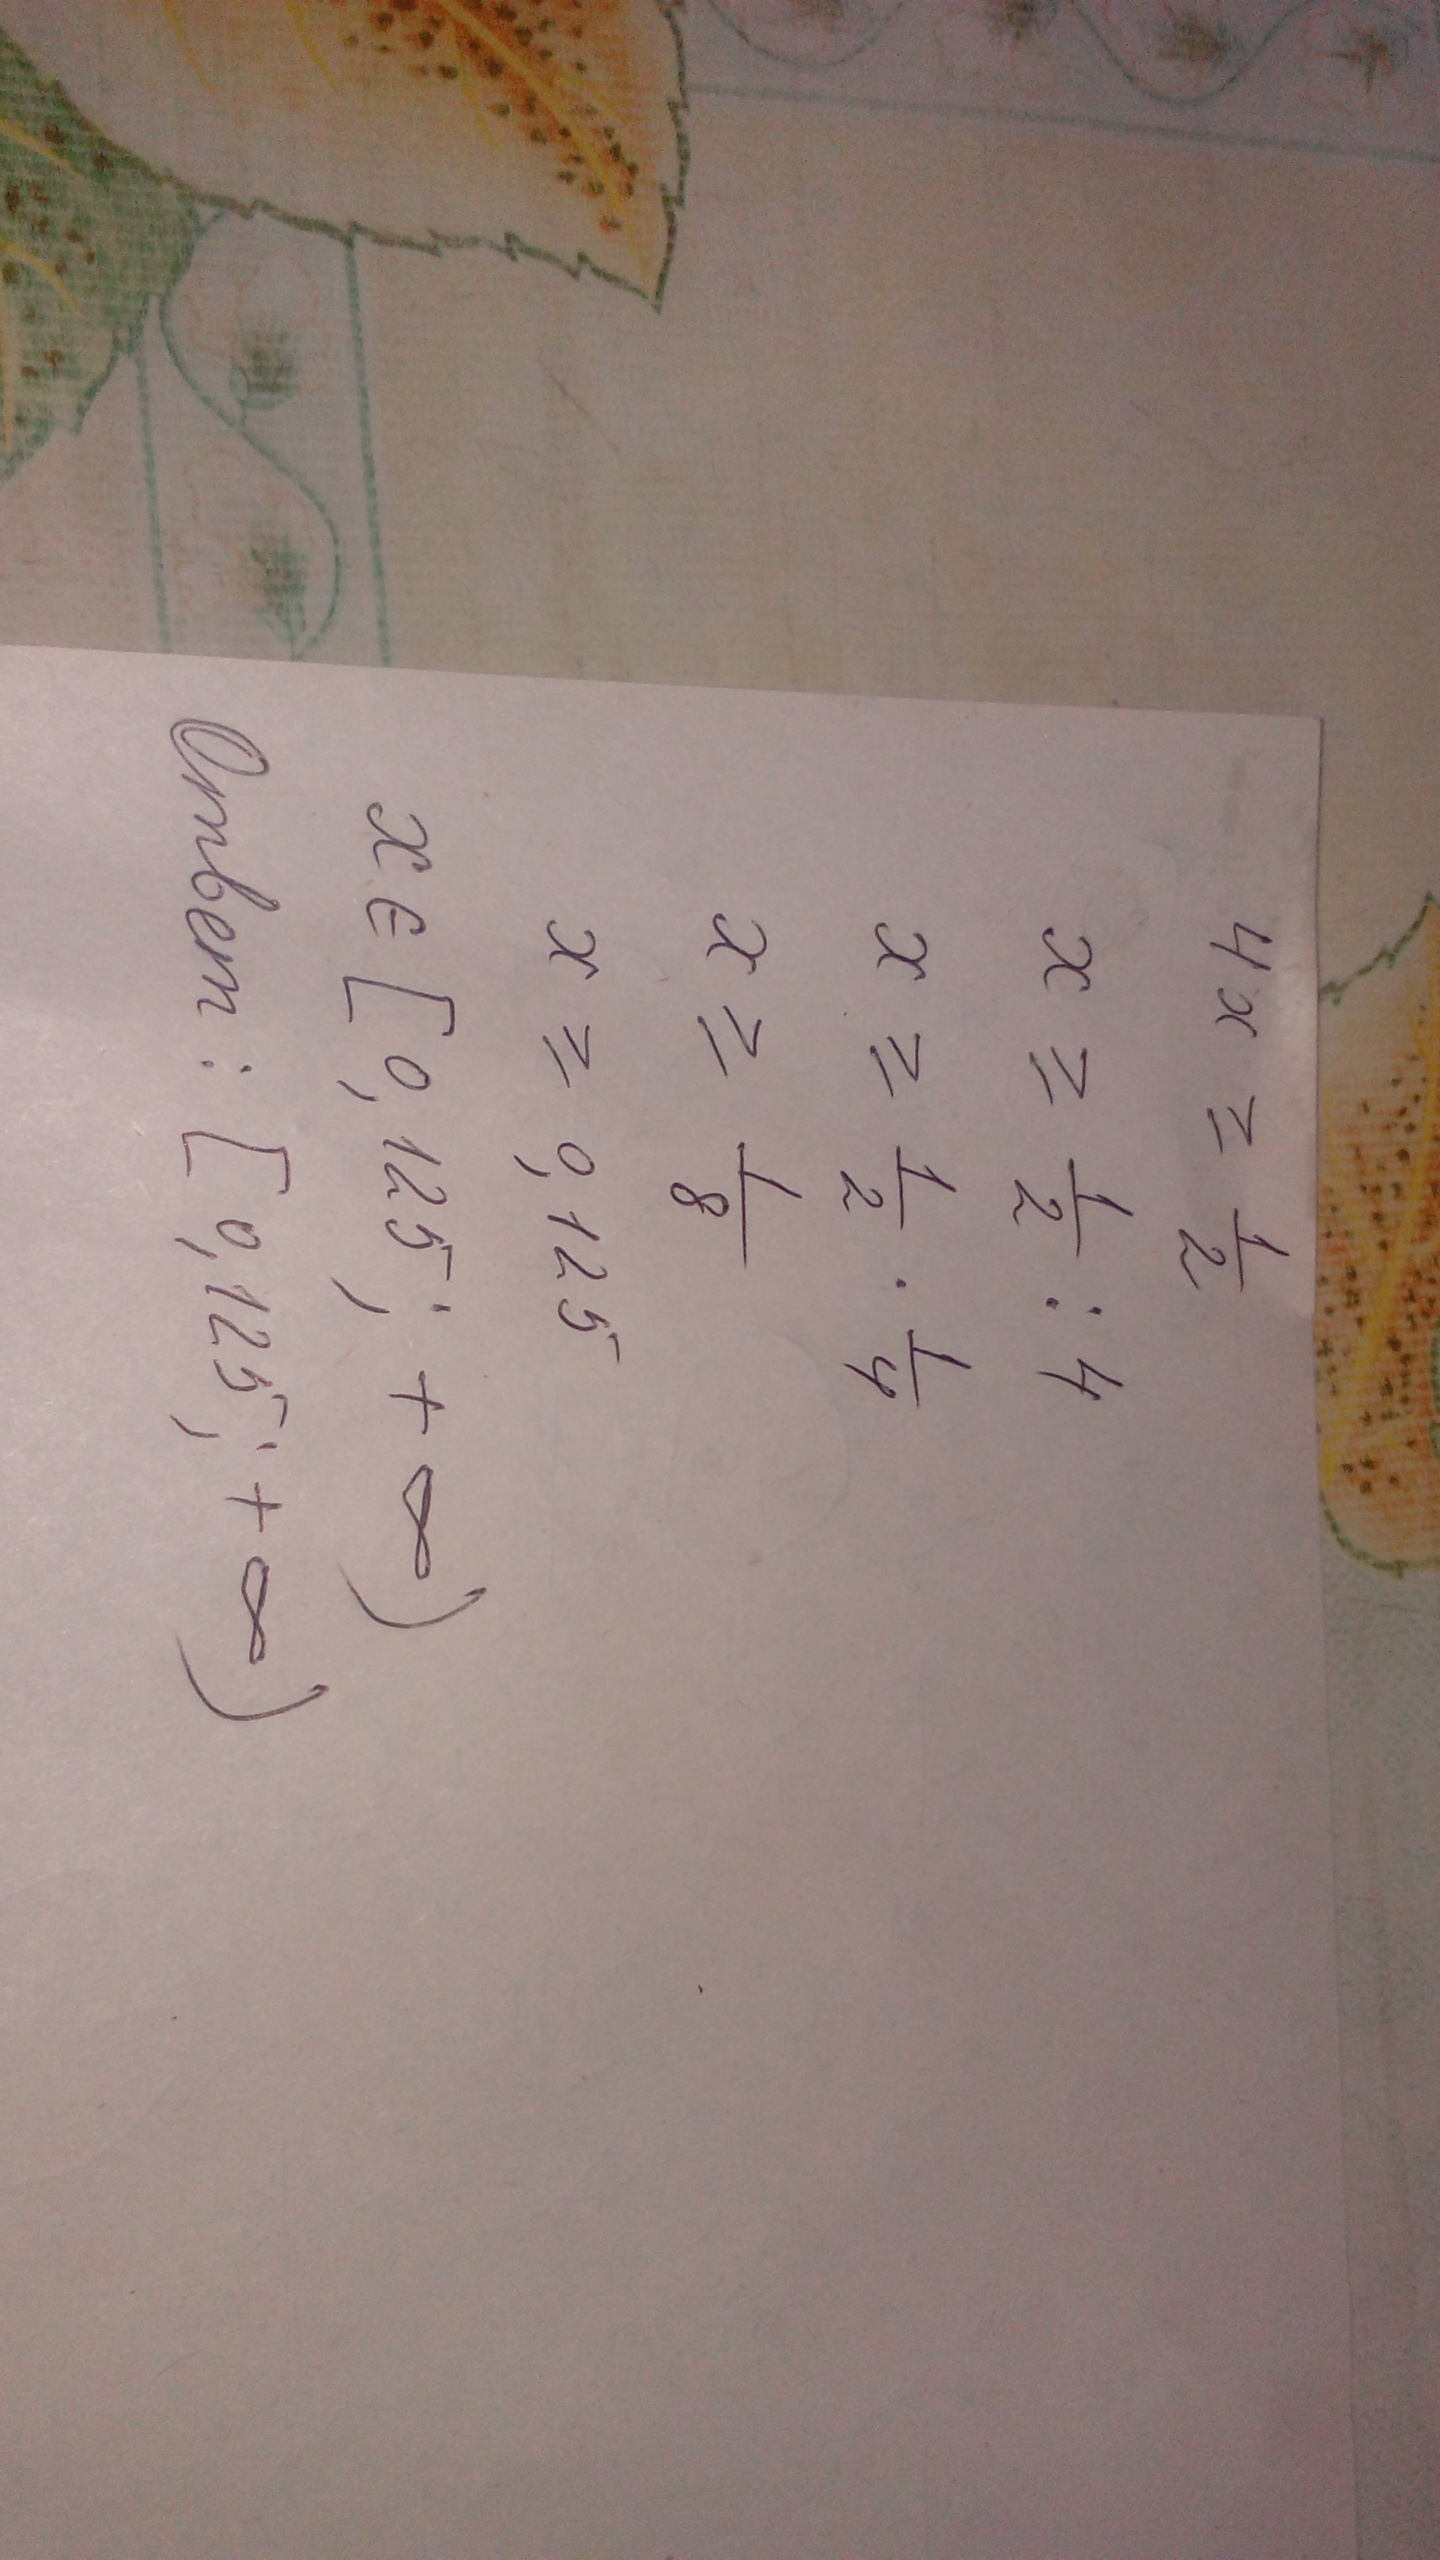 4x ≥ 1/2
x ≥ 1/2 : 4
x ≥ 1/2 · 1/4
x ≥ 1/8
x ≥ 0,125
x ∈ [0,125; +∞)
Ответ: [0,125; +∞)